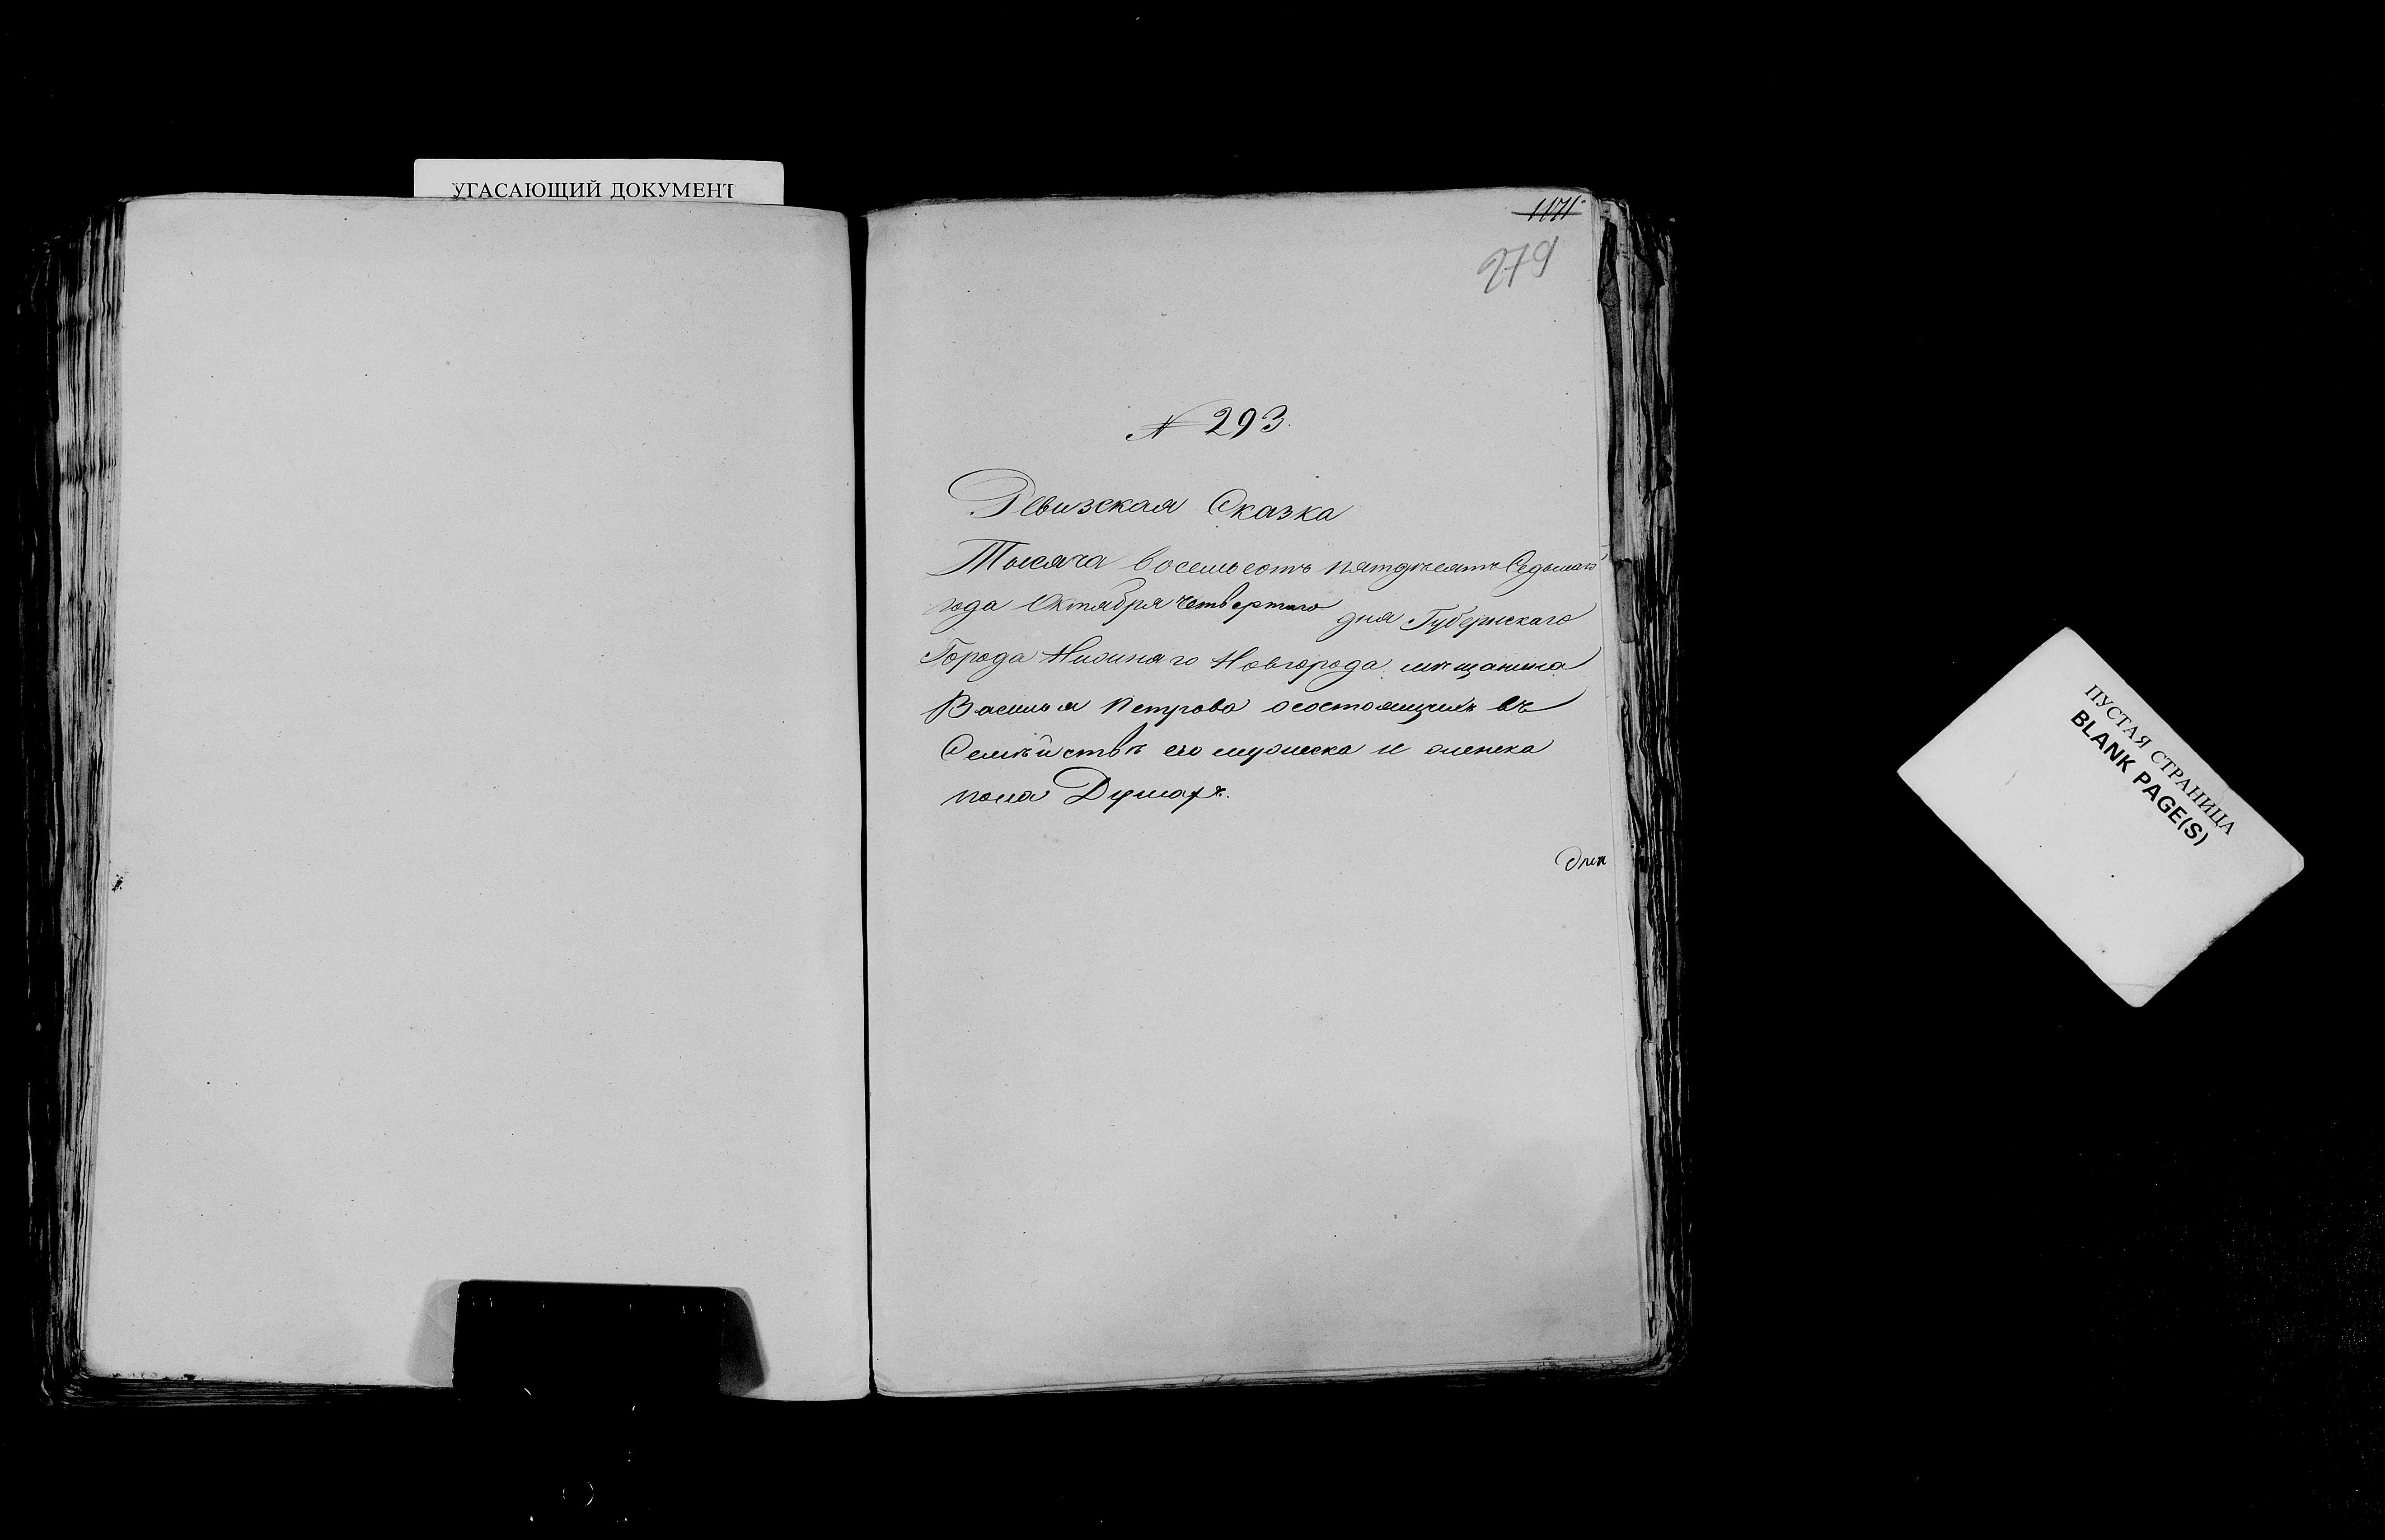 УГАСАЮЩИЙ ДОКУМЕНТ
1171
279
№ 293.
Ревизская Сказка
Тысяча восемьсотъ пятдѣсятъ Седьмаго
года Октября четвертаго дня Губернскаго
Города Нижняго Новгорода мѣщанина
Василья Петрова осостоящихъ въ
Семѣйствѣ его мужеска и женска
пола Душахъ.
ПУСТАЯ СТРАНИЦА
BLANK PAGE(S)